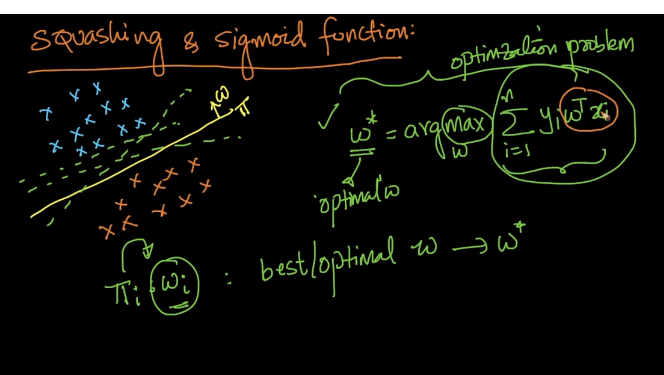 Squashing & sigmoid function:
optimzation problem
w
π
w* = argmax_w Σ_{i=1}^{n} yᵢ wᵀxᵢ
optimal w
πᵢ : wᵢ : best/optimal w → w*